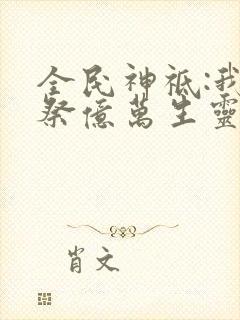 全民神祇:我
祭億萬生靈
肖文